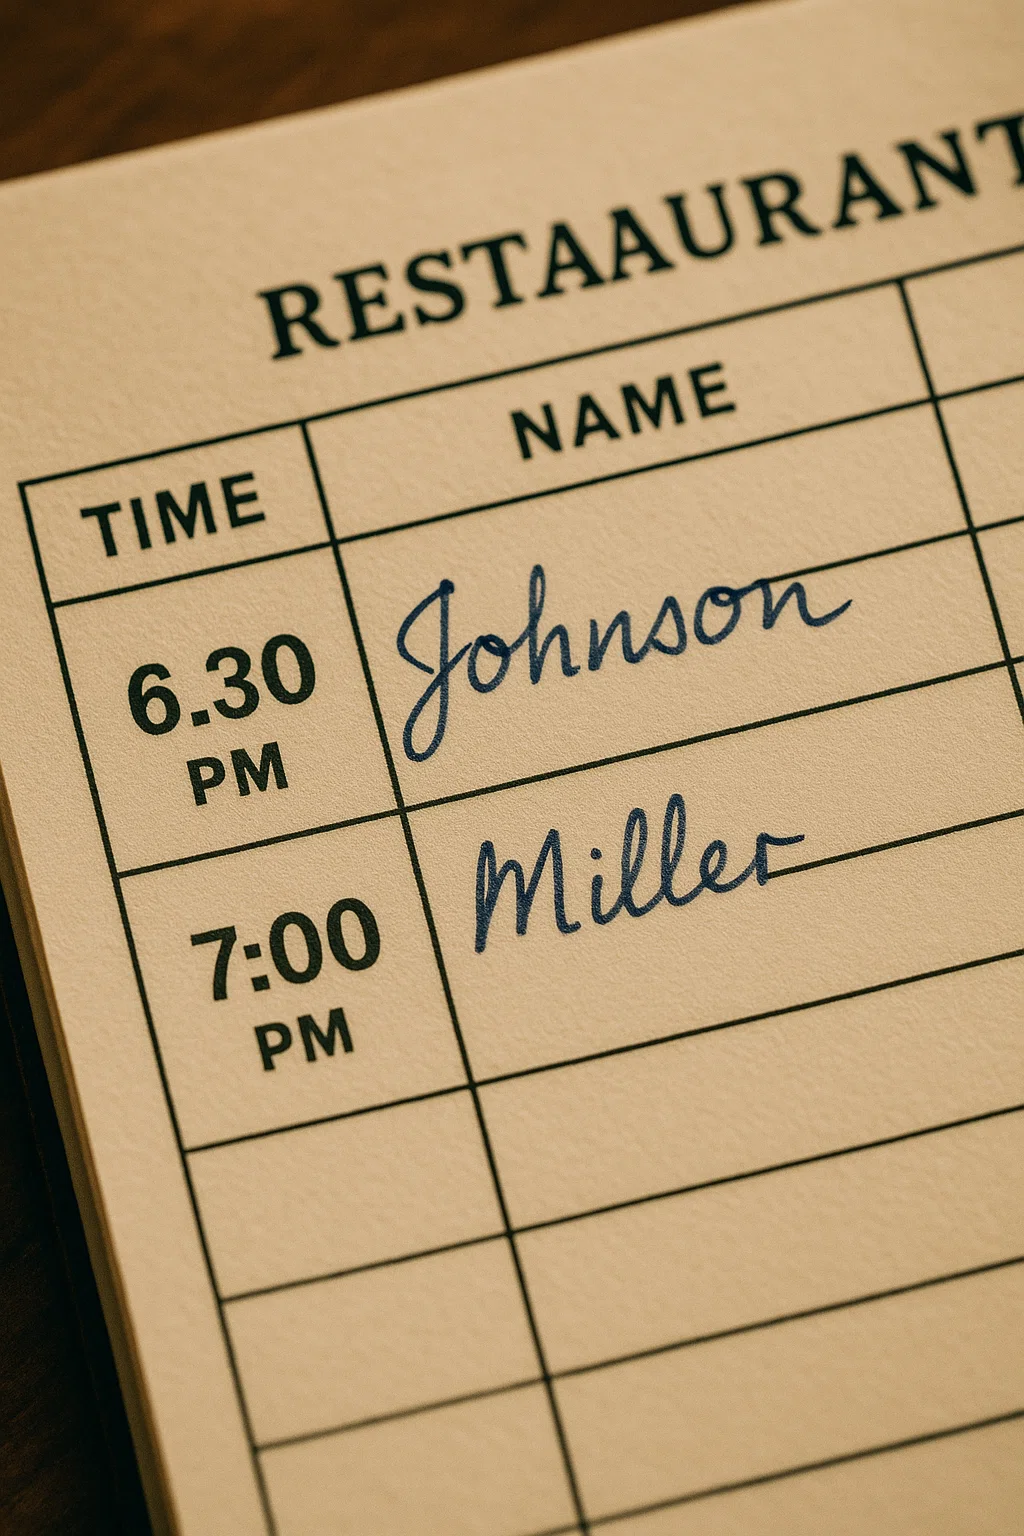 RESTAAURANT
TIME NAME
6.30 Johnson
PM
7:00 Miller
PM